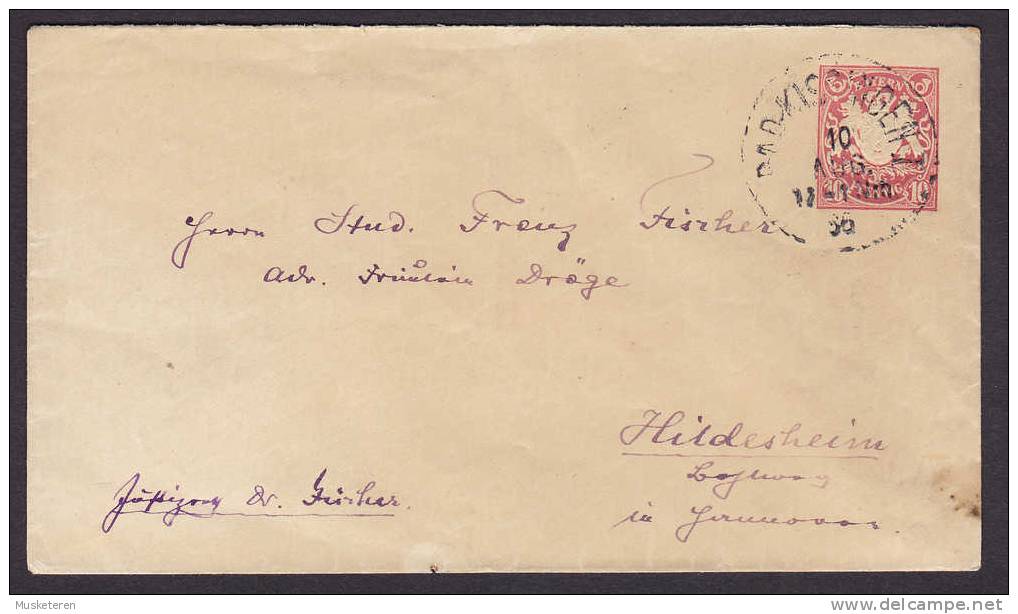 BAYERN
10 PFENNIG 10
BAD-KISSINGEN I
10
AUG.
96
Herrn Stud. Franz Fischer
Adr. Fräulein Dröge
Hildesheim
in Hannover
Dr. Fischer.
Musketeren
delcampe.net